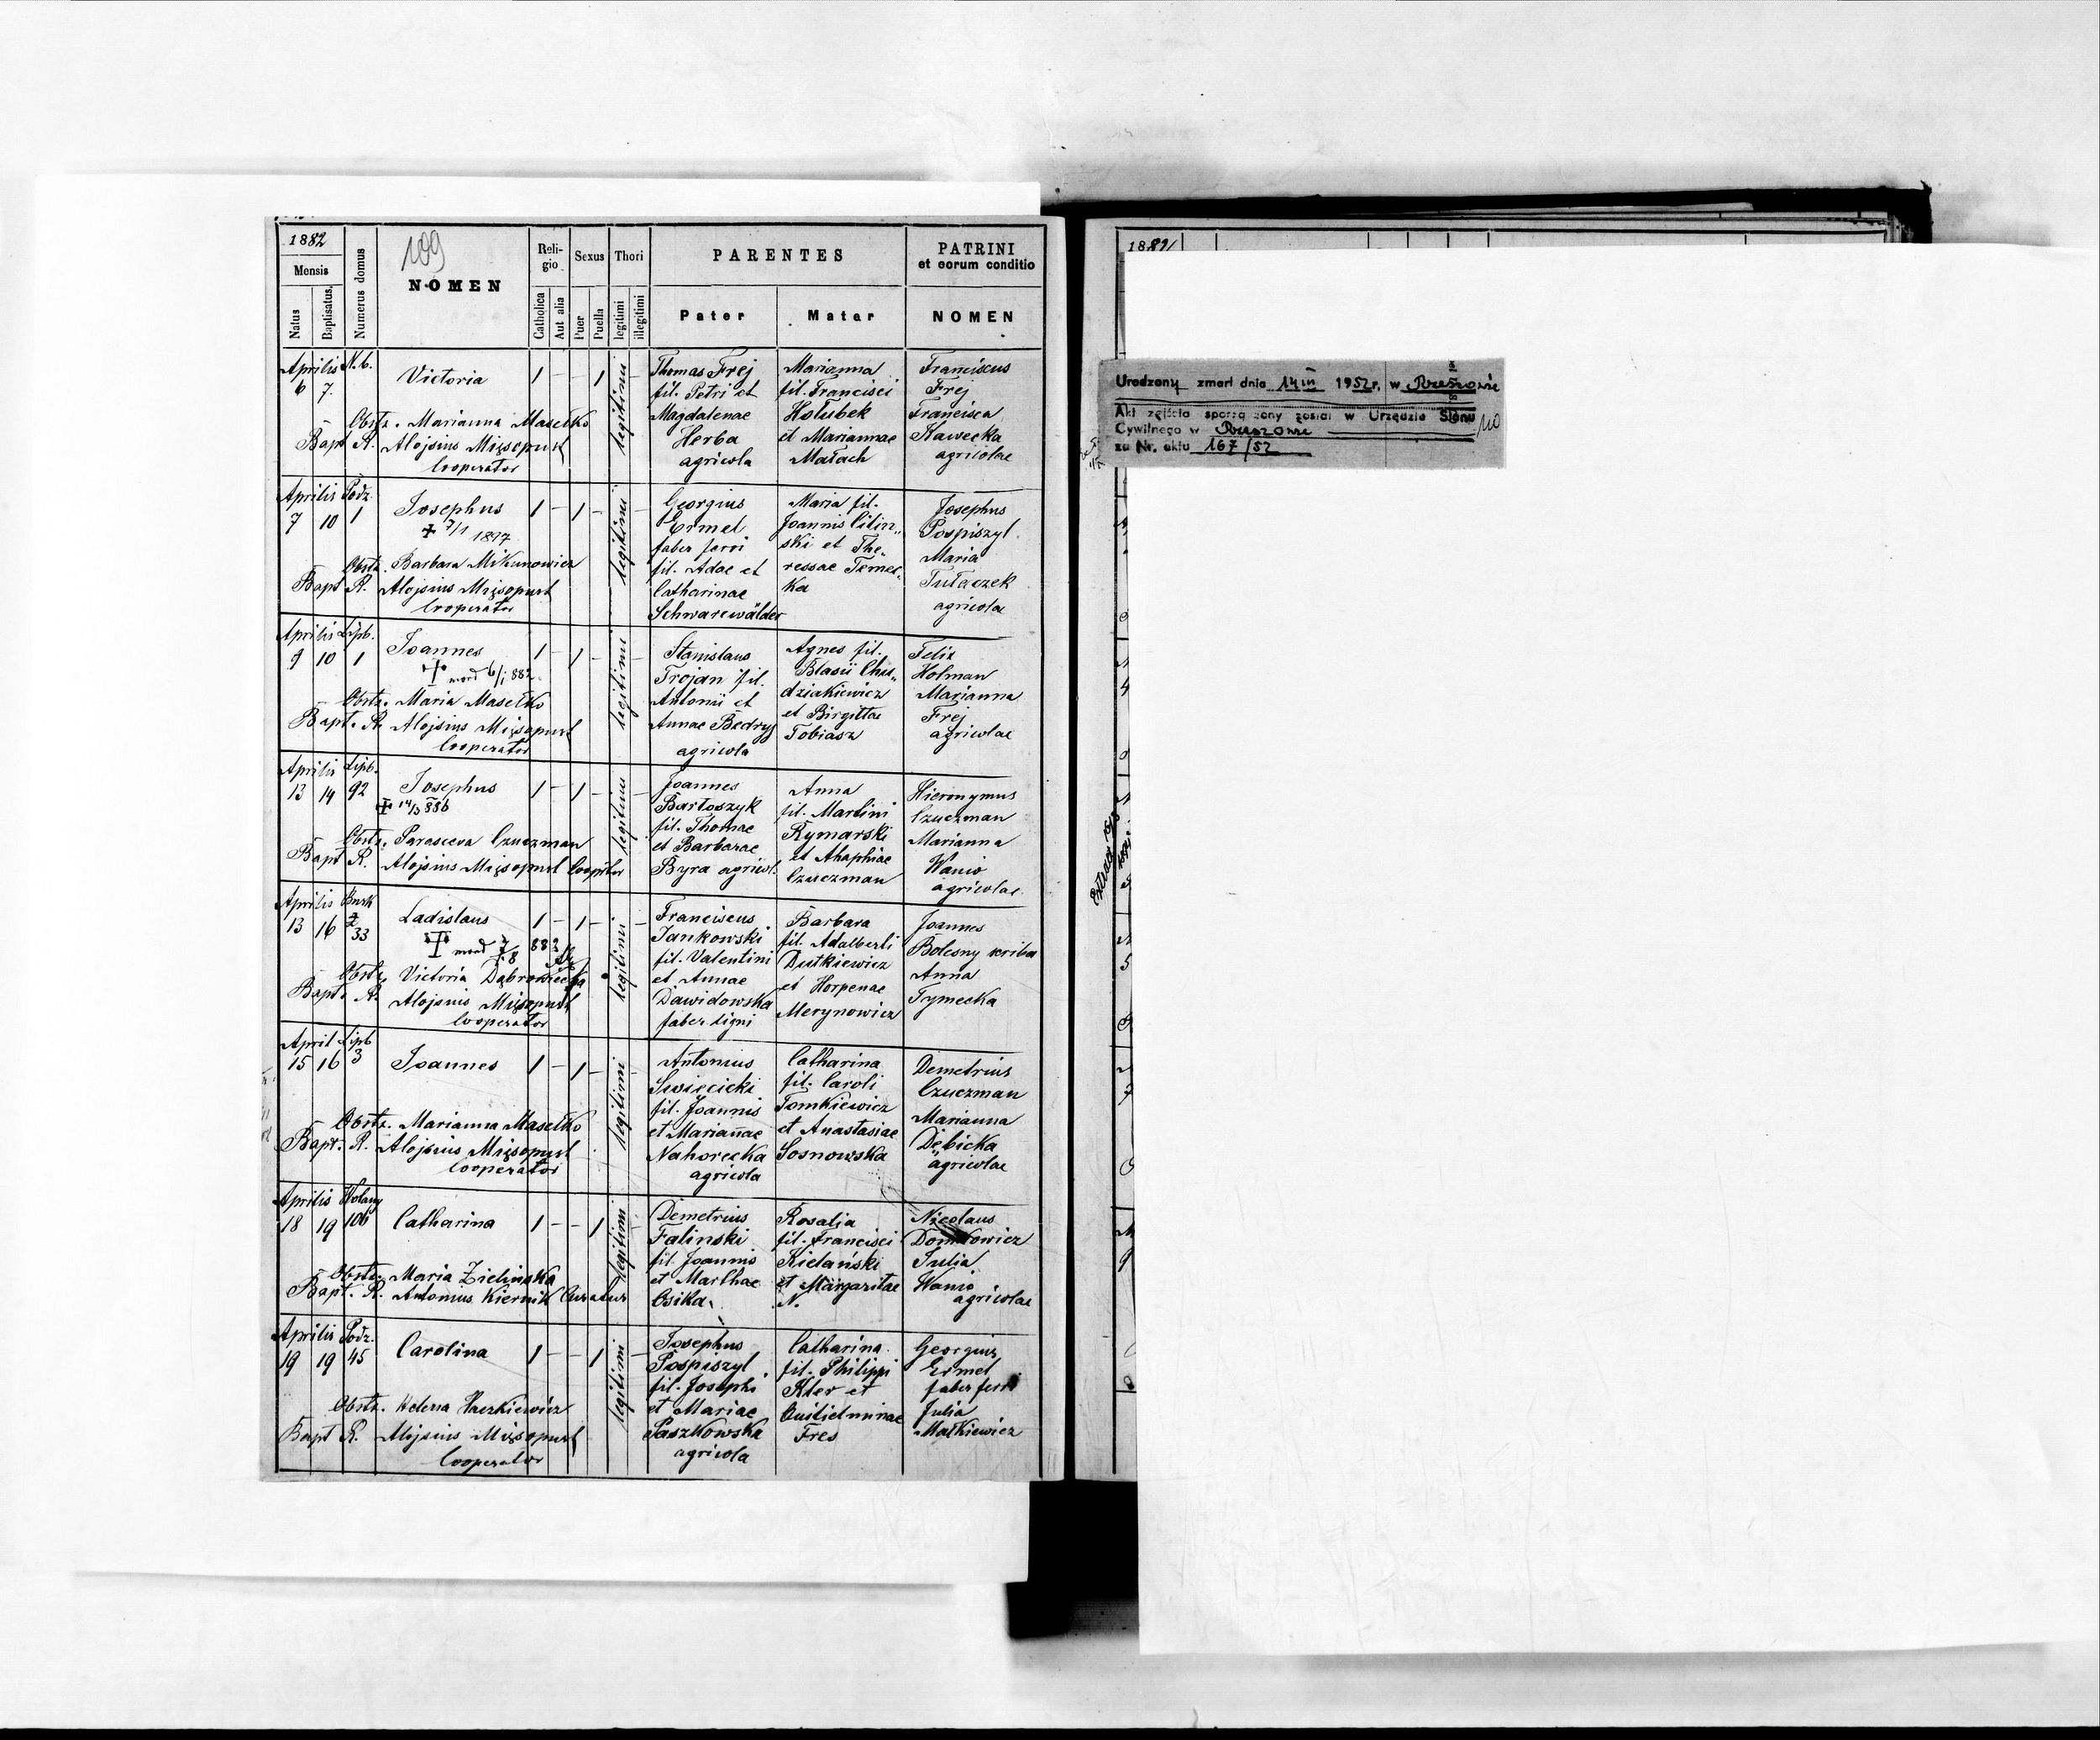 1882
109
Mensis
Natus
Baptisatus.
Numerus domus
NOMEN
Religio
Catholica
Aut alia
Sexus
Puer
Puella
Thori
legitimi
illegitimi
PARENTES
Pater
Mater
PATRINI
et eorum conditio
NOMEN
Aprilis N. b.
6 7.
Victoria
1 – – 1
legitimi
Obstz. Marianna Masełko
Bapt R. Alojsius Mięsopust
Cooperator
Thomas Frej
fil. Petri et
Magdalenae
Herba
agricola
Marianna
fil. Francisci
Hołubek
et Mariannae
Małach
Franciscus
Frej
Francisca
Kawecka
agricolae
Aprilis Podz.
7 10 1
Josephus
+ 7/1 1877
1 – 1 –
legitimi
Obstz. Barbara Mikunowicz
Bapt R. Alojsius Mięsopust
Cooperator
Georgius
Ermel
faber ferri
fil. Adae et
Catharinae
Schwarcwälder
Maria fil.
Joannis Cilin„
ski et The„
ressae Temec„
ka
Josephus
Pospiszyl
Maria
Tułaczek
agricolae
Aprilis Lipb.
9 10 1
Joannes
+ mort 6/1 882.
1 – 1 –
legitimi
Obstz. Maria Masełko
Bapt. R. Alojsius Mięsopust
Cooperator
Stanislaus
Trojan fil.
Antonii et
Annae Bedryj
agricola
Agnes fil.
Blasii Chu„
dziakiewicz
et Birgittae
Tobiasz
Felix
Holman
Marianna
Frej
agricolae
Aprilis Lipb.
13 14 92
Josephus
+ 14/3 886
1 – 1 –
legitimi
Obstz. Parasceva Czuczman
Bapt R. Alojsius Mięsopust Coopttor
Joannes
Bartoszyk
fil. Thomae
et Barbarae
Byra agricol.
Anna
fil. Martini
Rymarski
et Ahaphiae
Czuczman
Hieronymus
Czuczman
Marianna
Wanio
agricolae
Aprilis Brzk
13 16 33
Ladislaus
+ mort 7/8 883
1 – 1 –
legitimi
Obstz Victoria Dąbrowiecka
Bapt. R. Alojsius Mięsopust
Cooperator
Franciscus
Jankowski
fil. Valentini
et Annae
Dawidowska
faber ligni
Barbara
fil. Adalberti
Dutkiewicz
et Horpenae
Merynowicz
Joannes
Bolesny scriba
Anna
Tymecka
April Lipb
15 16 3
Joannes
1 – 1 –
legitimi
Obstz. Marianna Masełko
Bapt. R. Alojsius Mięsopust
Cooperator
Antonius
Swięcicki
fil. Joannis
et Mariañae
Nahorecka
agricola
Catharina
fil. Caroli
Tomkiewicz
et Anastasiae
Sosnowska
Demetrius
Czuczman
Marianna
Dębicka
agricolae
Aprilis Wolany
18 19 106
Catharina
1 – – 1
legitimi
Obstz. Maria Zielinska
Bapt. R. Antonius Kiernik Curatus
Demetrius
Falinski
fil. Joannis
et Marthae
Osika
Rosalia
fil. Francisci
Kielański
et Margaritae
N.
Nicolaus
Domkowicz
Julia
Wanio
agricolae
Aprilis Podz.
19 19 45
Carolina
1 – – 1
legitimi
Obstz. Helena Haczkiewicz
Bapt R. Alojsius Mięsopust
Cooperator
Josephus
Pospiszyl
fil. Josephi
et Mariae
Paszkowska
agricola
Catharina
fil. Philippi
Kter et
Guilielminae
Fres
Georgius
Ermel
faber ferri
Julia
Małkiewicz
Urodzony zmarł dnia 14 III 1952 r. w Rzeszowie
Akt zejścia sporządzony został w Urzędzie Stanu
Cywilnego w Rzeszowie
za Nr. aktu 167/52
110